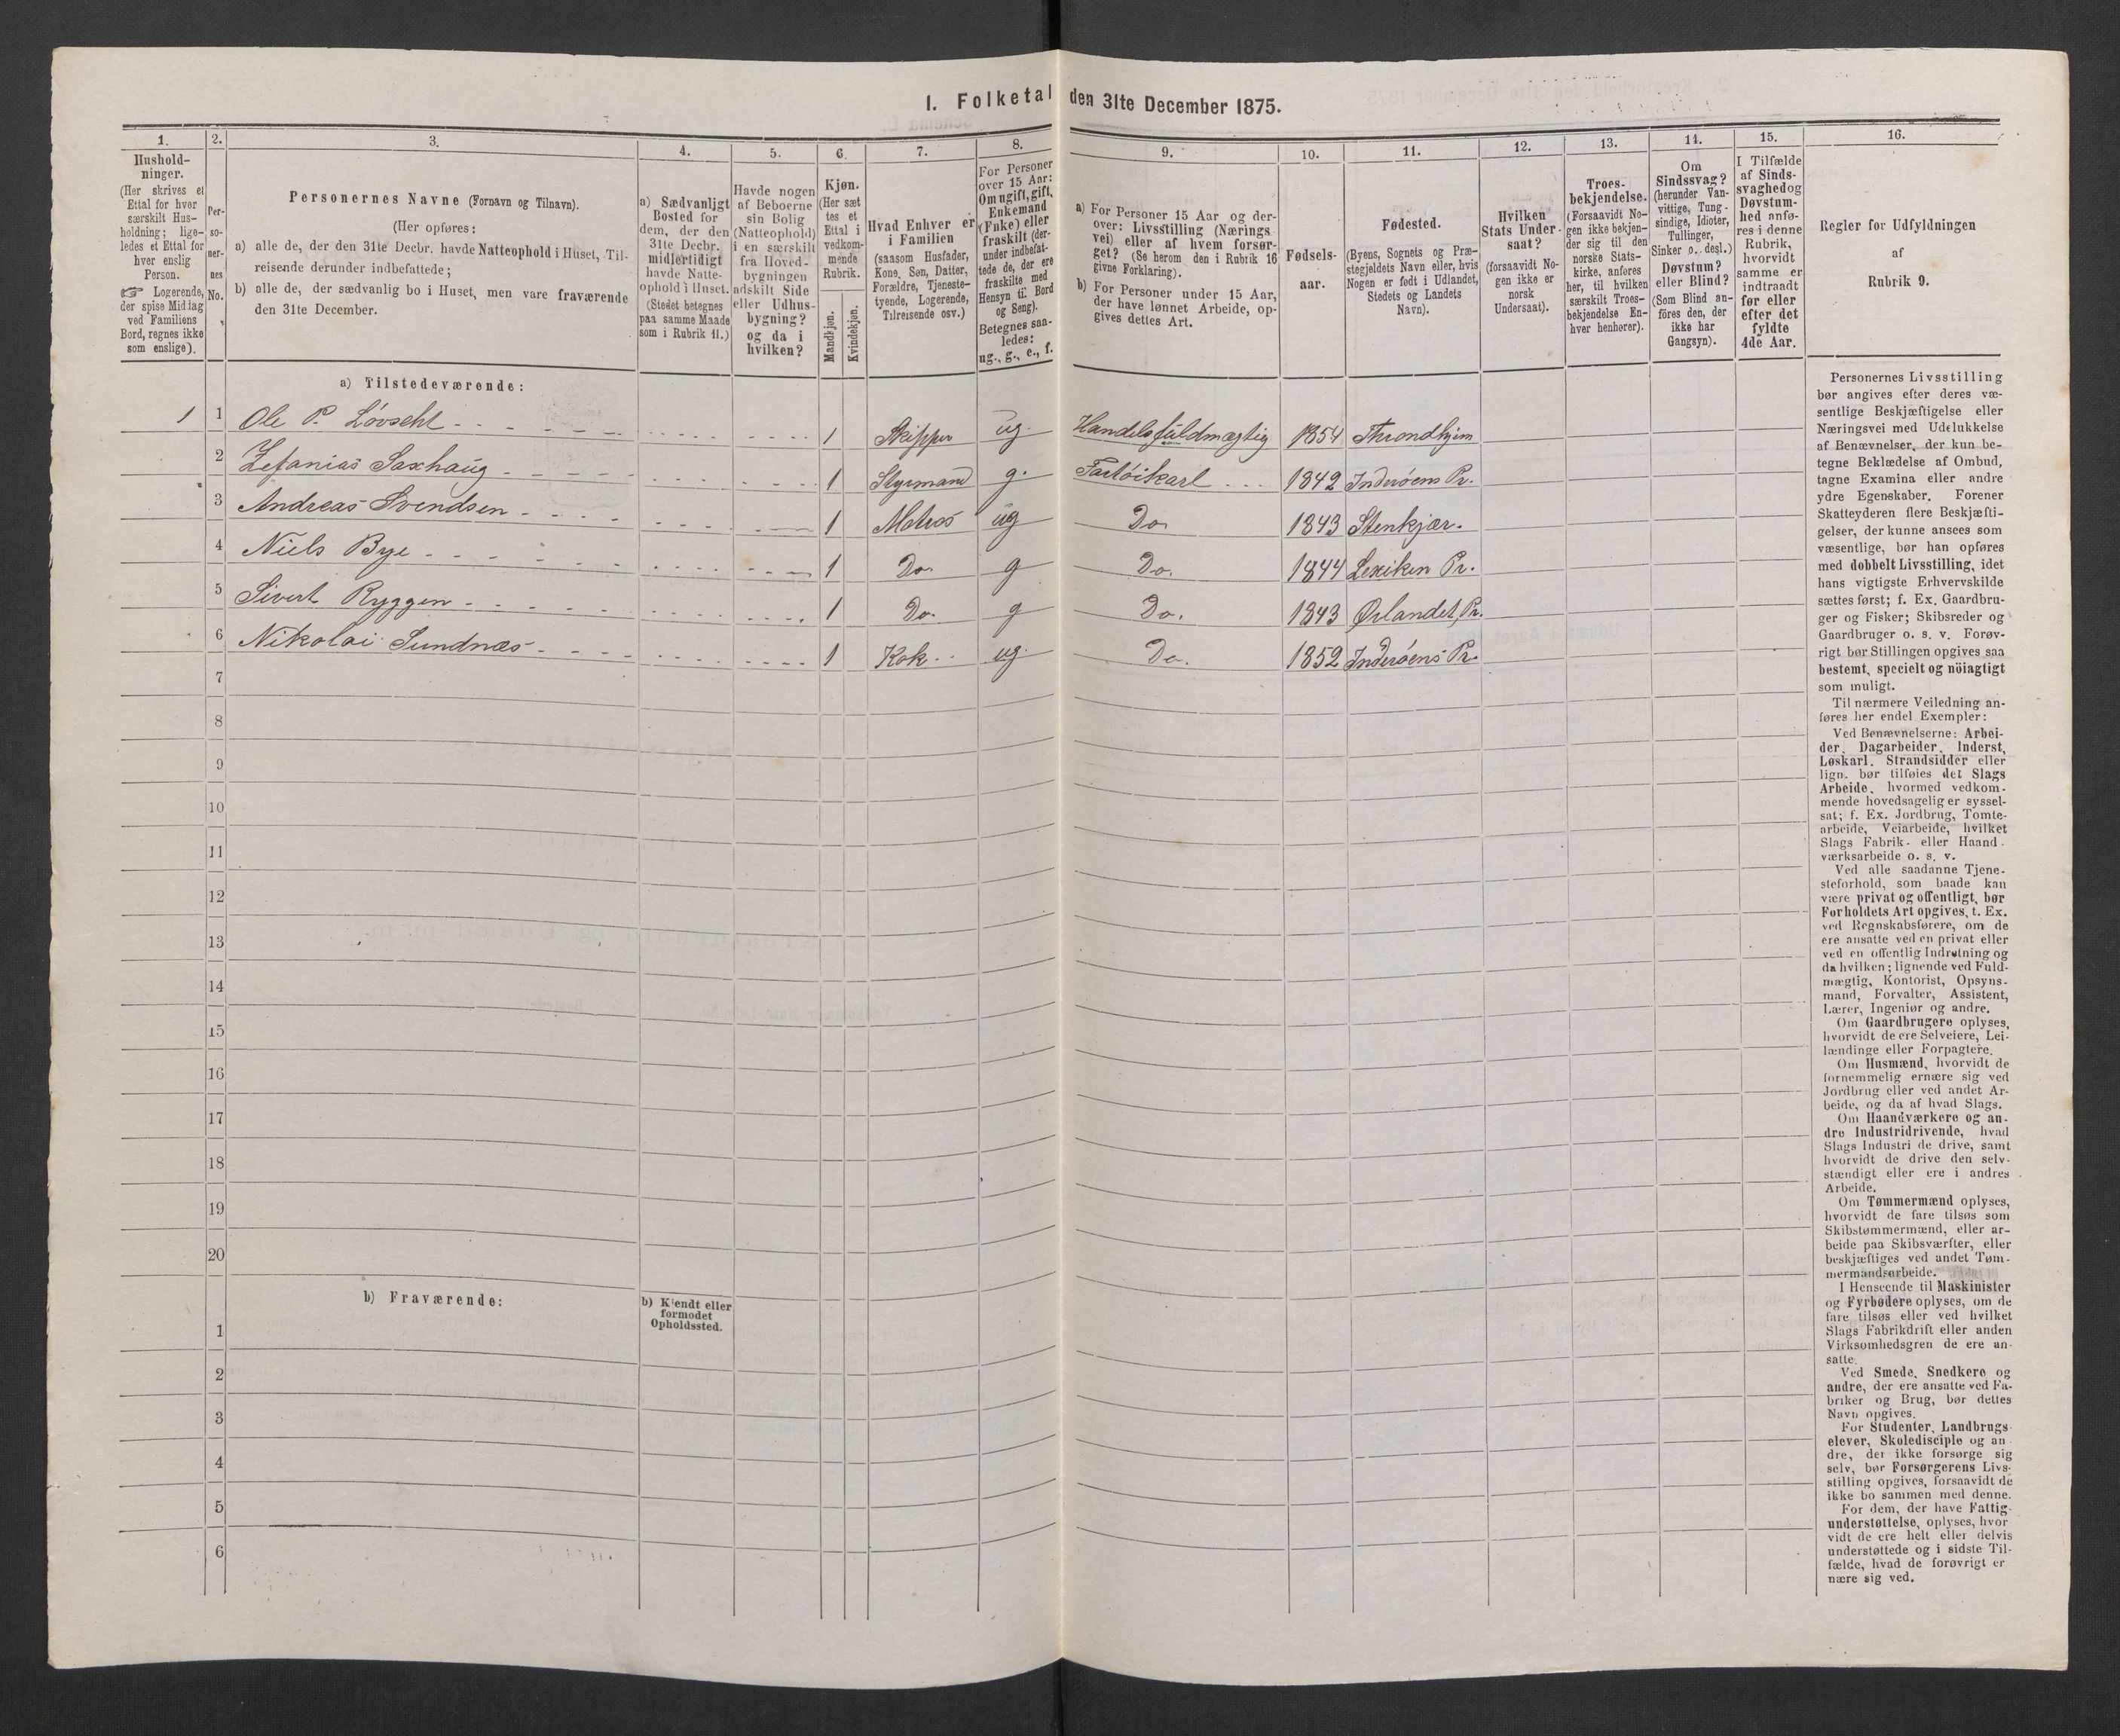 I. Folketal den 31te December 1875.
1. 2. 3. 4. 5. 6. 7. 8. 9. 10. 11. 12. 13. 14. 15. 16.
Hushold-
ninger.
(Her skrives et
Ettal for hver
særskilt Hus-
holdning; lige-
ledes et Ettal for
hver enslig
Person.
☞ Logerende,
der spise Middag
ved Familiens
Bord, regnes ikke
som enslige).
Per-
so-
ner-
nes
No.
Personernes Navne (Fornavn og Tilnavn).
(Her opføres:
a) alle de, der den 31te Decbr. havde Natteophold i Huset, Til-
reisende derunder indbefattede;
b) alle de, der sædvanlig bo i Huset, men vare fraværende
den 31te December.
a) Sædvanligt
Bosted for
dem, der den
31te Decbr.
midlertidigt
havde Natte-
ophold i Huset.
(Stedet betegnes
paa samme Maade
som i Rubrik 11.)
Havde nogen
af Beboerne
sin Bolig
(Natteophold)
i en særskilt
fra Hoved-
bygningen
adskilt Side
eller Udhus-
bygning?
og da i
hvilken?
Kjøn.
(Her sæt
tes et
Ettal i
vedkom-
mende
Rubrik.
Mandkjøn.
Kvindekjøn.
Hvad Enhver er
i Familien
(saasom Husfader,
Kone, Søn, Datter,
Forældre, Tjeneste-
tyende, Logerende,
Tilreisende osv.)
For Personer
over 15 Aar:
Om ugift, gift,
Enkemand
(Enke) eller
fraskilt (der-
under indbefat-
tede de, der ere
fraskilte med
Hensyn til Bord
og Seng).
Betegnes saa-
ledes:
ug., g., e., f.
a) For Personer 15 Aar og der-
over: Livsstilling (Nærings
vei) eller af hvem forsør-
get? (Se herom den i Rubrik 16
givne Forklaring).
b) For Personer under 15 Aar,
der have lønnet Arbeide, op-
gives dettes Art.
Fødsels-
aar.
Fødested.
(Byens, Sognets og Præ-
stegjeldets Navn eller, hvis
Nogen er født i Udlandet,
Stedets og Landets
Navn).
Hvilken
Stats Under-
saat?
(forsaavidt No-
gen ikke er
norsk
Undersaat).
Troes-
bekjendelse.
(Forsaavidt No-
gen ikke bekjen-
der sig til den
norske Stats-
kirke, anføres
her, til hvilken
særskilt Troes-
bekjendelse En-
hver henhører).
Om
Sindssvag?
(herunder Van-
vittige, Tung-
sindige, Idioter,
Tullinger,
Sinker o. desl.)
Døvstum?
eller Blind?
(Som Blind an-
föres den, der
ikke har
Gangsyn).
I Tilfælde
af Sinds-
svaghed og
Døvstum-
hed anfø-
res i denne
Rubrik,
hvorvidt
samme er
indtraadt
før eller
efter det
fyldte
4de Aar.
Regler for Udfyldningen
af
Rubrik 9.
a) Tilstedeværende:
1 1 Ole P. Lövseht 1 Skipper ug. Handelsfuldmægtig 1854 Throndhjem
2 Zefanias Saxhaug 1 Styrmand g. Fartöikarl 1842 Inderöens Pr.
3 Andreas Svendsen 1 Matros ug Do 1843 Stenkjær.
4 Niels Bye 1 Do. g Do. 1844 Lexiken Pr.
5 Sivert Ryggen 1 Do. g Do. 1843 Ørlandet, Pr.
6 Nikolai Sundnæs 1 Kok ug. Do. 1852 Inderöens Pr.
7
8
9
10
11
12
13
14
15
16
17
18
19
20
b) Fraværende:
b) Kjendt eller
formodet
Opholdssted.
1
2
3
4
5
6
Personernes Livsstilling
bør angives efter deres væ-
sentlige Beskjæftigelse eller
Næringsvei med Udelukkelse
af Benævnelser, der kun be-
tegne Beklædelse af Ombud,
tagne Examina eller andre
ydre Egenskaber. Forener
Skatteyderen flere Beskjæfti-
gelser, der kunne ansees som
væsentlige, bør han opføres
med dobbelt Livsstilling, idet
hans vigtigste Erhvervskilde
sættes først; f. Ex. Gaardbru-
ger og Fisker; Skibsreder og
Gaardbruger o. s. v. Forøv-
rigt bør Stillingen opgives saa
bestemt, specielt og nöiagtigt
som muligt.
Til nærmere Veiledning an-
føres her endel Exempler:
Ved Benævnelserne: Arbei-
der, Dagarbeider, Inderst,
Løskarl, Strandsidder eller
lign. bør tilføies det Slags
Arbeide, hvormed vedkom-
mende hovedsagelig er syssel-
sat; f. Ex. Jordbrug, Tomte-
arbeide, Veiarbeide, hvilket
Slags Fabrik- eller Haand-
værksarbeide o. s. v.
Ved alle saadanne Tjene-
steforhold, som baade kan
være privat og offentligt, bør
Forholdets Art opgives, t. Ex.
ved Regnskabsførere, om de
ere ansatte ved en privat eller
ved en offentlig Indretning og
da hvilken; lignende ved Fuld-
mægtig, Kontorist, Opsyns-
mand, Forvalter, Assistent,
Lærer, Ingeniør og andre.
Om Gaardbrugere oplyses,
hvorvidt de ere Selveiere, Lei-
lændinge eller Forpagtere.
Om Husmænd, hvorvidt de
fornemmelig ernære sig ved
Jordbrug eller ved andet Ar-
beide, og da af hvad Slags.
Om Haandværkere og an-
dre Industridrivende, hvad
Slags Industri de drive, samt
hvorvidt de drive den selv-
stændigt eller ere i andres
Arbeide.
Om Tømmermænd oplyses,
hvorvidt de fare tilsøs som
Skibstømmermænd, eller ar-
beide paa Skibsværfter, eller
beskjæftiges ved andet Tøm-
mermandsarbeide.
I Henseende til Maskinister
og Fyrbødere oplyses, om de
fare tilsøs eller ved hvilket
Slags Fabrikdrift eller anden
Virksomhedsgren de ere an-
satte.
Ved Smede, Snedkere og
andre, der ere ansatte ved Fa-
briker og Brug, bør dettes
Navn opgives.
For Studenter, Landbrugs-
elever, Skoledisciple og an
dre, der ikke forsørge sig
selv, bør Forsørgerens Livs-
stilling opgives, forsaavidt de
ikke bo sammen med denne.
For dem, der have Fattig-
understøttelse, oplyses, hvor-
vidt de ere helt eller delvis
understøttede og i sidste Til-
fælde, hvad de forøvrigt er
nære sig ved.